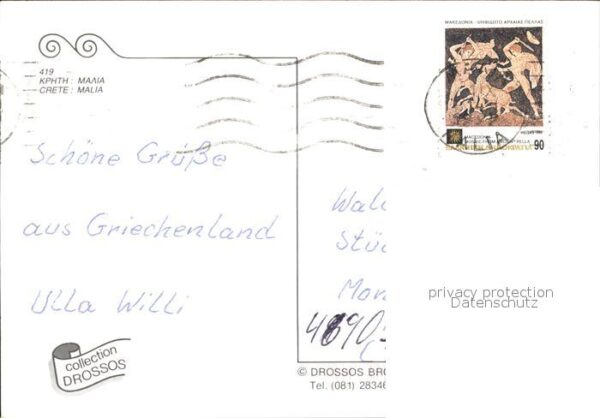 419
ΚΡΗΤΗ : ΜΑΛΙΑ
CRETE : MALIA
ΜΑΚΕΔΟΝΙΑ - ΨΗΦΙΔΩΤΟ ΑΡΧΑΙΑΣ ΠΕΛΛΑΣ
90
Schöne Grüße
aus Griechenland
Ulla Willi
Wal
Stü
Mon
4690
collection
DROSSOS
© DROSSOS BRO
Tel. (081) 28346
privacy protection
Datenschutz